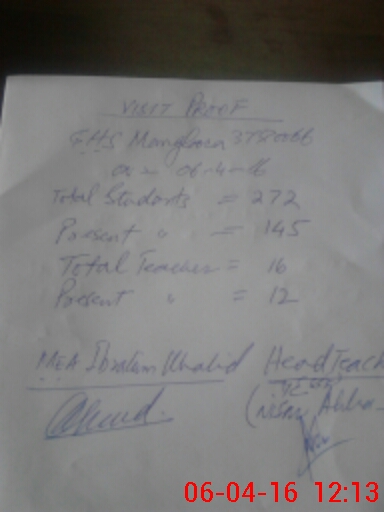 VISIT PROOF
GHS Manghora
on 06-4-16
Total Students = 272
Present " = 145
Total Teachers = 16
Present " = 12
MEA Ibrahim Khalid Head Teach
(Nisar
06-04-16 12:13